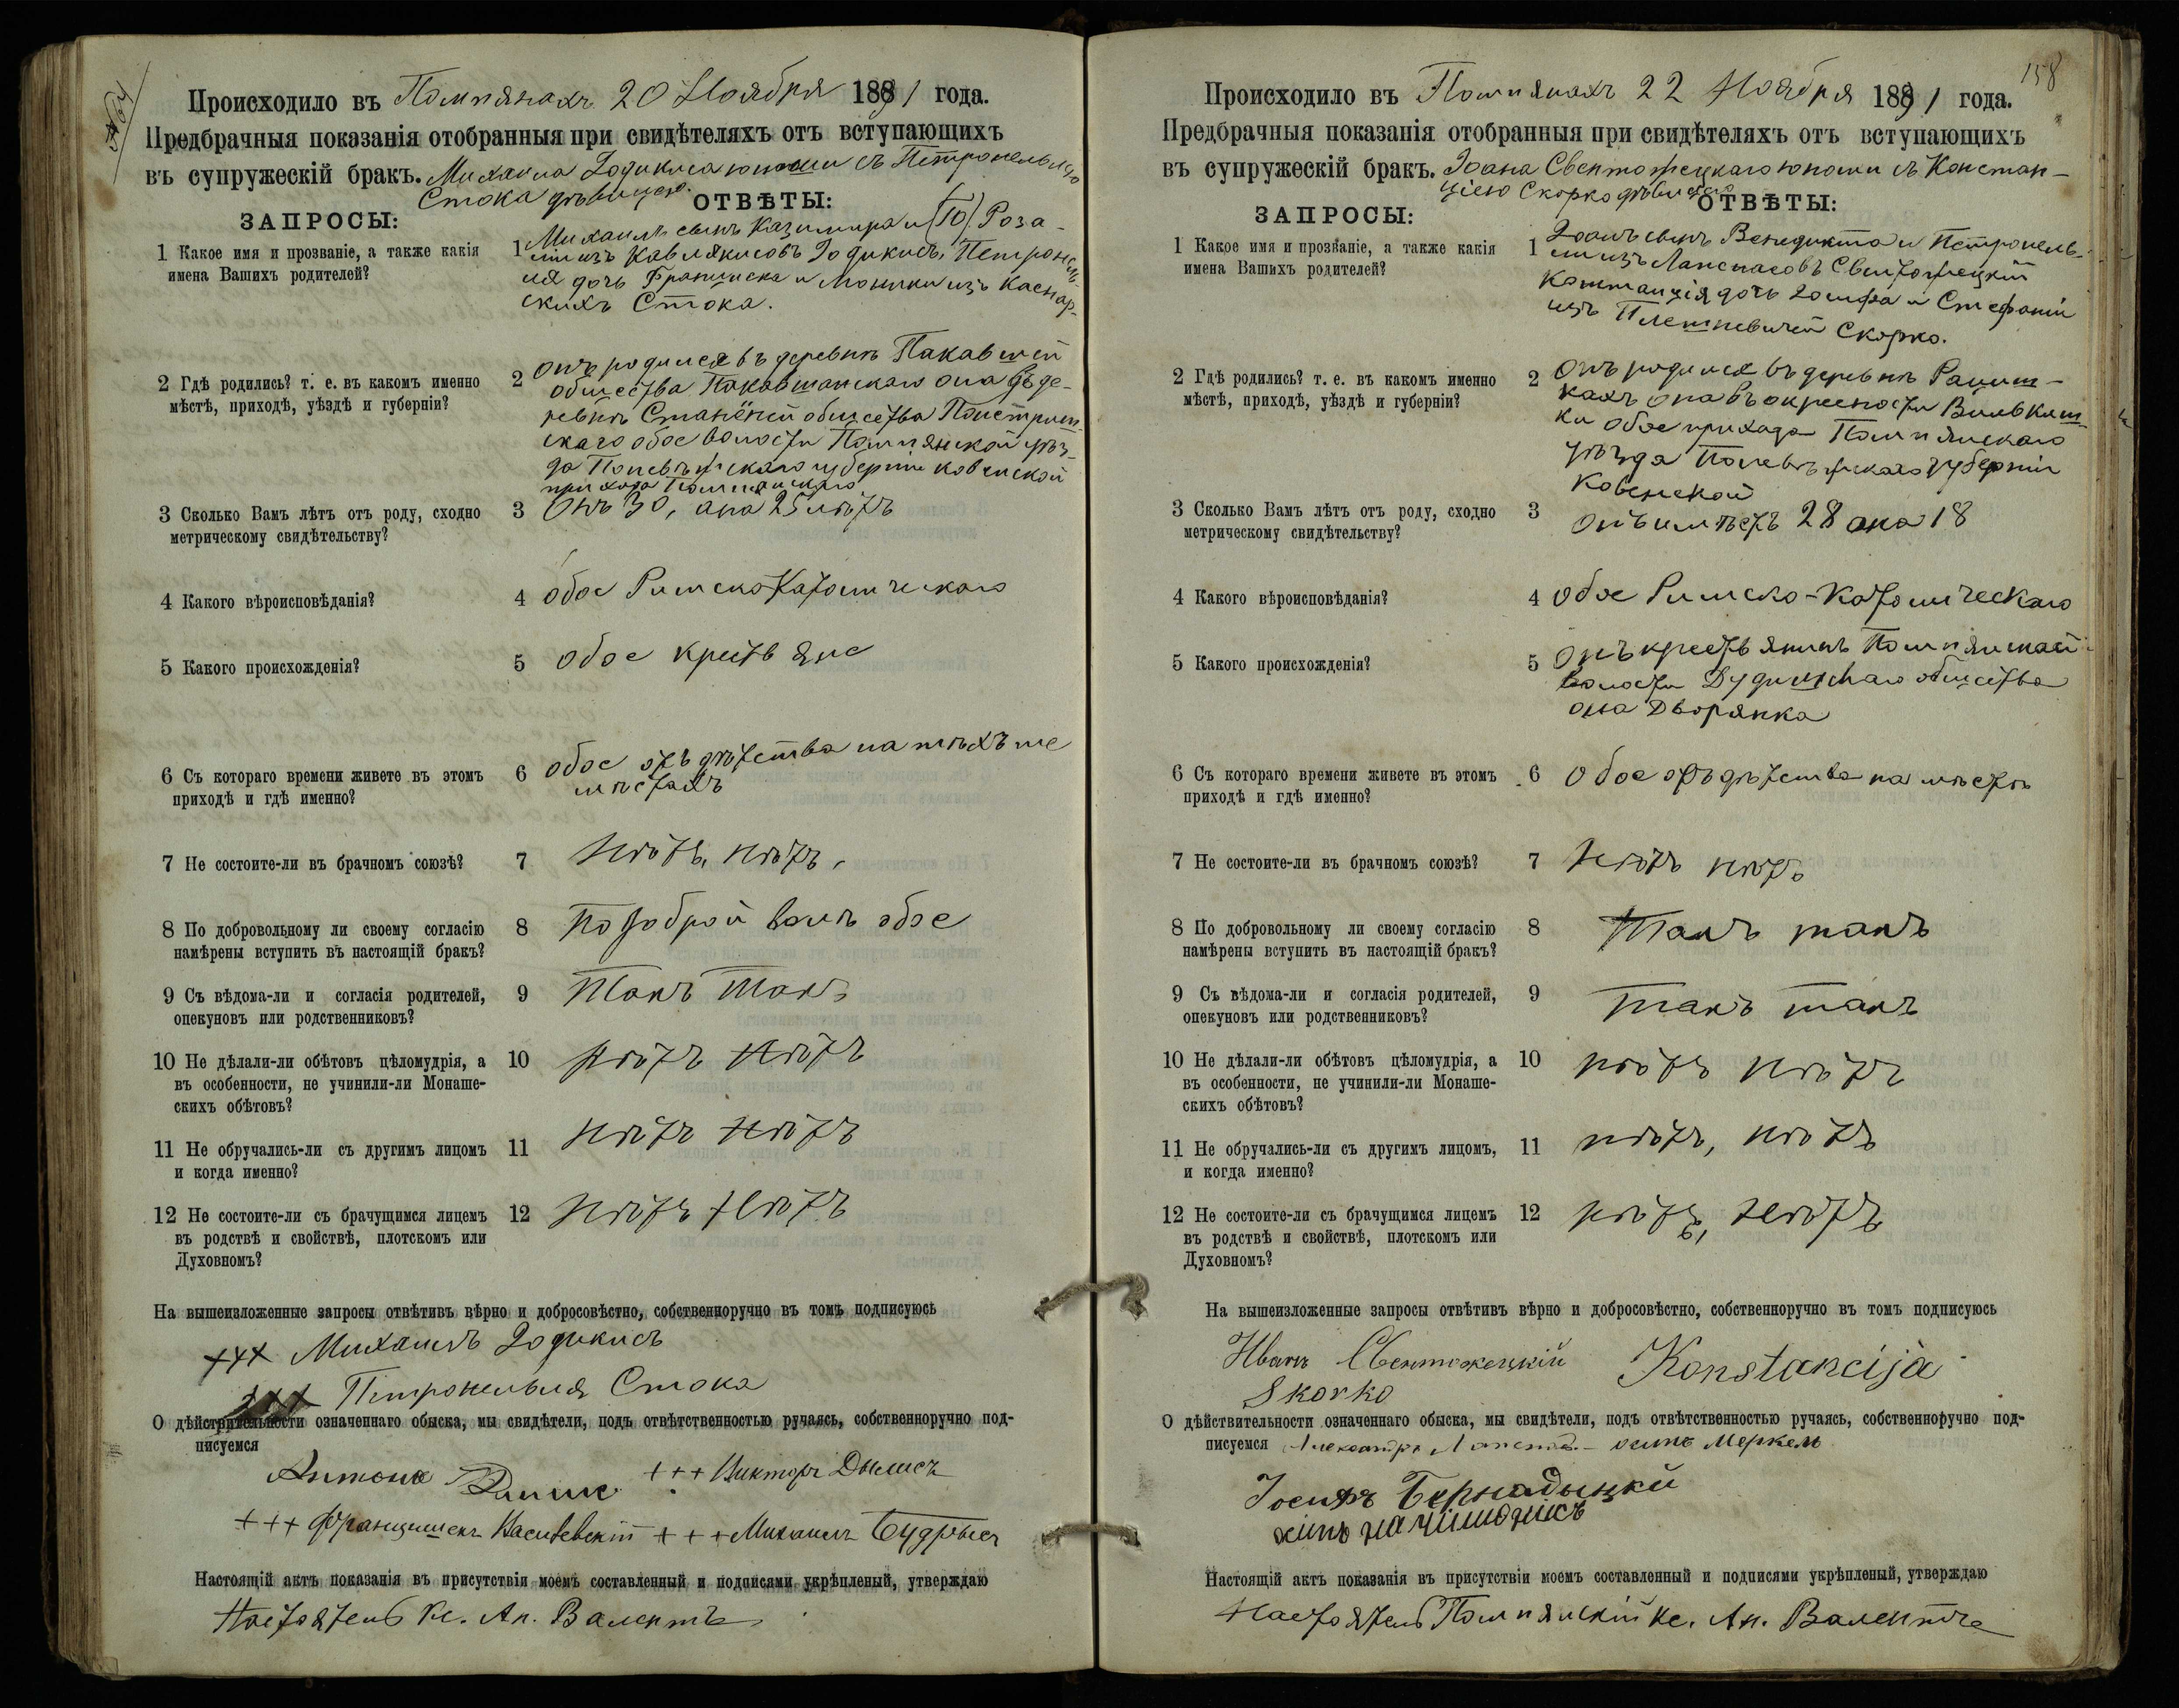 Происходило въ Помпянахъ 20 Ноября 1891 года.
Предбрачныя показанія отобранныя при свидѣтеляхъ отъ вступающихъ
въ супружескій бракъ. Михаила Іодикиса юноши съ Петронельлею
Стока дѣвицею.
ЗАПРОСЫ: ОТВѢТЫ:
1 Какое имя и прозваніе, а также какія
имена Вашихъ родителей?
1 Михаилъ сынъ Казимира и Роза-
ліи изъ Іодикисъ, Петронель-
ля дочь Франциска и Моники изъ Каспар-
скихъ Стока.
2 Гдѣ родились? т. е. въ какомъ именно
мѣстѣ, приходѣ, уѣздѣ и губерніи?
2 Онъ родился въ деревнѣ
общества она въ де-
ревнѣ общества
скаго обое волости Помпянской уѣз-
да Поневѣжскаго губерніи Ковенской
прихода Помпянскаго
3 Сколько Вамъ лѣтъ отъ роду, сходно
метрическому свидѣтельству?
3 Онъ 30, она 25 лѣтъ
4 Какого вѣроисповѣданія?
4 обое Римско Католическаго
5 Какого происхожденія?
5 обое крестьяне
6 Съ котораго времени живете въ этомъ
приходѣ и гдѣ именно?
6 обое отъ дѣтства на тѣхъ же
мѣстахъ
7 Не состоите-ли въ брачномъ союзѣ?
7 Нѣтъ, нѣтъ,
8 По добровольному ли своему согласію
намѣрены вступить въ настоящій бракъ?
8 По доброй волѣ обое
9 Съ вѣдома-ли и согласія родителей,
опекуновъ или родственниковъ?
9 Такъ такъ
10 Не дѣлали-ли обѣтовъ цѣломудрія, а
въ особенности, не учинили-ли Монаше-
скихъ обѣтовъ?
10 Нѣтъ нѣтъ
11 Не обручались-ли съ другимъ лицомъ
и когда именно?
11 Нѣтъ нѣтъ
12 Не состоите-ли съ брачущимся лицемъ
въ родствѣ и свойствѣ, плотскомъ или
Духовномъ?
12 Нѣтъ Нѣтъ
На вышеизложенные запросы отвѣтивъ вѣрно и добросовѣстно, собственноручно въ томъ подписуюсь
+++ Михаилъ Іодикисъ
+++ Петронельля Стока
О дѣйствительности означеннаго обыска, мы свидѣтели, подъ отвѣтственностью ручаясь, собственноручно под-
писуемся
Антонъ +++ Викторъ
+++ Францишекъ Василевскій +++ Михаилъ Будрысъ
Настоящій актъ показанія въ присутствіи моемъ составленный и подписями укрѣпленый, утверждаю
Настоятель Кс. Ан. Валентъ
158
Происходило въ Помпянахъ 22 Ноября 1891 года.
Предбрачныя показанія отобранныя при свидѣтеляхъ отъ вступающихъ
въ супружескій бракъ. Іоана Свентожецкаго юноши съ Констан-
ціею Скорко дѣвицею
ЗАПРОСЫ: ОТВѢТЫ:
1 Какое имя и прозваніе, а также какія
имена Вашихъ родителей?
1 Іоанъ сынъ Венедикта и Петронель-
ли изъ Свентожецкій
Констанція дочь Іосифа и Стефаніи
изъ Скорко.
2 Гдѣ родились? т. е. въ какомъ именно
мѣстѣ, приходѣ, уѣздѣ и губерніи?
2 Онъ родился въ деревнѣ
она въ окресности
обое прихода Помпянскаго
уѣзда Поневѣжскаго губерніи
Ковенской
3 Сколько Вамъ лѣтъ отъ роду, сходно
метрическому свидѣтельству?
3 Онъ имѣетъ 28 она 18
4 Какого вѣроисповѣданія?
4 Обое Римско-Католическаго
5 Какого происхожденія?
5 Онъ крестьянинъ Помпянской
волости общества
она Дворянка
6 Съ котораго времени живете въ этомъ
приходѣ и гдѣ именно?
6 Обое отъ дѣтства на мѣстѣ
7 Не состоите-ли въ брачномъ союзѣ?
7 Нѣтъ нѣтъ
8 По добровольному ли своему согласію
намѣрены вступить въ настоящій бракъ?
8 Такъ такъ
9 Съ вѣдома-ли и согласія родителей,
опекуновъ или родственниковъ?
9 Такъ такъ
10 Не дѣлали-ли обѣтовъ цѣломудрія, а
въ особенности, не учинили-ли Монаше-
скихъ обѣтовъ?
10 нѣтъ нѣтъ
11 Не обручались-ли съ другимъ лицомъ,
и когда именно?
11 нѣтъ, нѣтъ
12 Не состоите-ли съ брачущимся лицемъ
въ родствѣ и свойствѣ, плотскомъ или
Духовномъ?
12 нѣтъ, нѣтъ
На вышеизложенные запросы отвѣтивъ вѣрно и добросовѣстно, собственноручно въ томъ подписуюсь
Иванъ Свентожецкій Konstancija
Skorko
О дѣйствительности означеннаго обыска, мы свидѣтели, подъ отвѣтственностью ручаясь, собственноручно под-
писуемся Александръ Меркель
Іосифъ Бернадыцкй
Настоящій актъ показанія въ присутствіи моемъ составленный и подписями укрѣпленый, утверждаю
Настоятель Помпянскій Кс. Ан. Валентъ